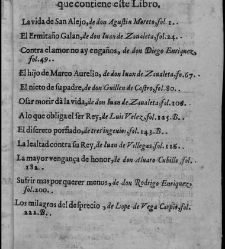 que contiene este Libro.
La vida de San Alejo, de don Agustin Moreto, fol. 1.
El Ermitaño Galan, de don Iuan de Zaualeta. fol. 24.
Contra el amor no ay engaños, de don Diego Enriquez,
fol. 49.
El hijo de Marco Aurelio, de don Iuan de Zaualeta. fo. 67.
El nieto de su padre, de don Guillen de Castro. fol. 80.
Osar morir dà la vida, de don Iuan de Zaualeta. fol. 106.
A lo que obliga el ser Rey, de Luis Velez, fol. 125. B.
El discreto porfiado, de tres ingenios. fol. 143. B.
La lealtad contra su Rey, de Iuan de Villegas, fol.
La mayor vengança de honor, de don Aluaro Cubillo, fol.
182.
Sufrir mas por querer menos, de don Rodrigo Enriquez,
fol. 200.
Los milagros del desprecio, de Lope de Vega Carpio, fol.
222. B.